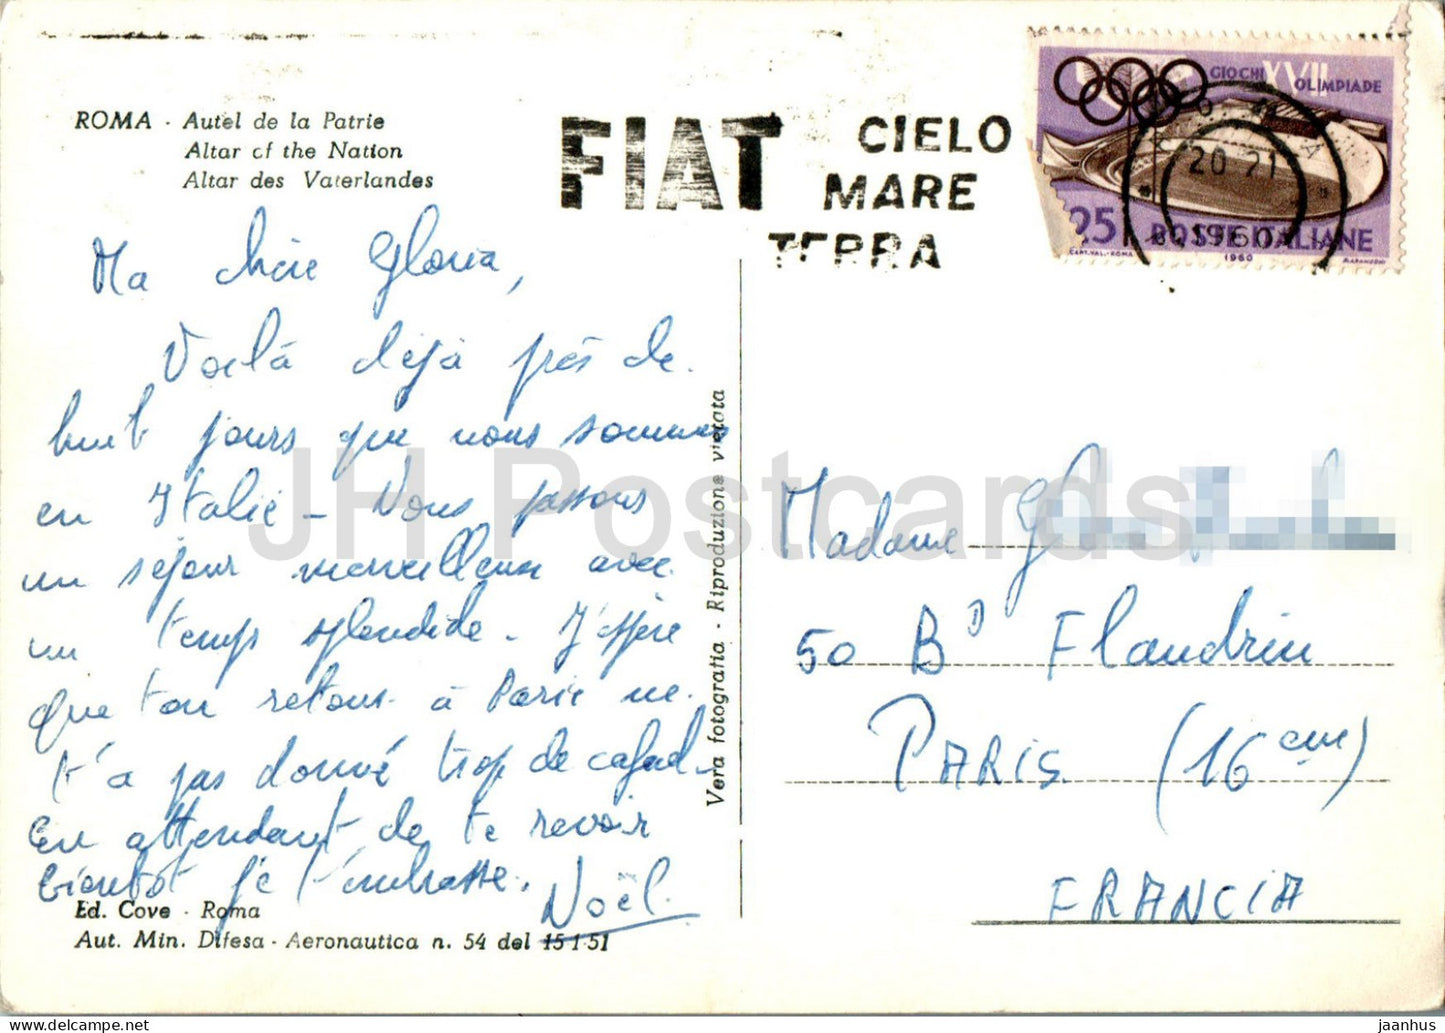 ROMA - Autel de la Patrie
Altar of the Nation
Altar des Vaterlandes
FIAT
CIELO
MARE
TERRA
GIOCHI XVII OLIMPIADE
20-21
1960
25
POSTE ITALIANE
CART.VAL.-ROMA
1960
Ma chère Gloria,
Voilà déjà près de
huit jours que nous sommes
en Italie - Nous passons
un séjour merveilleux avec
un temps splendide - J'espère
que ton retour à Paris ne
t'a pas donné trop de cafard -
En attendant de te revoir
bientôt je t'embrasse.
Noël
Ed. Cove - Roma
Aut. Min. Difesa - Aeronautica n. 54 del 15-1-51
Vera fotografia - Riproduzione vietata
Madame
50 Bd Flandrin
PARIS (16eme)
FRANCIA
JH Postcards
jaanhus @ delcampe.net